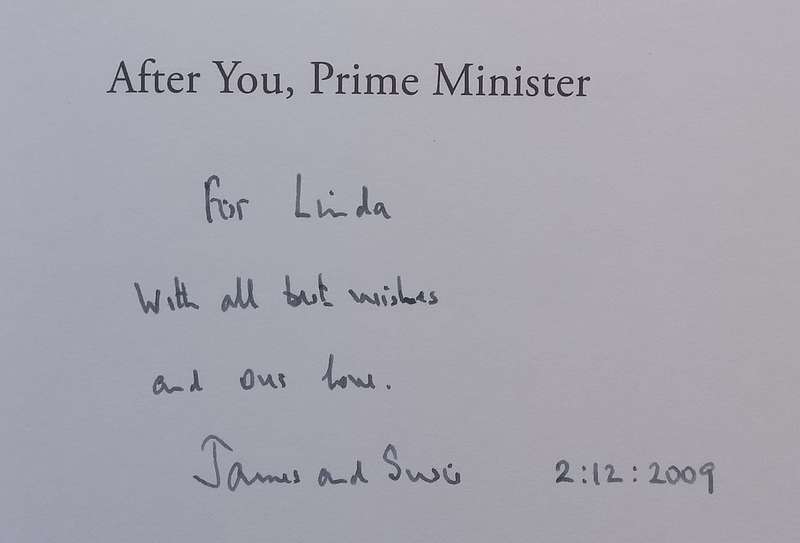 After You, Prime Minister
For Linda
With all best wishes
and our love.
James and Susie
2:12:2009